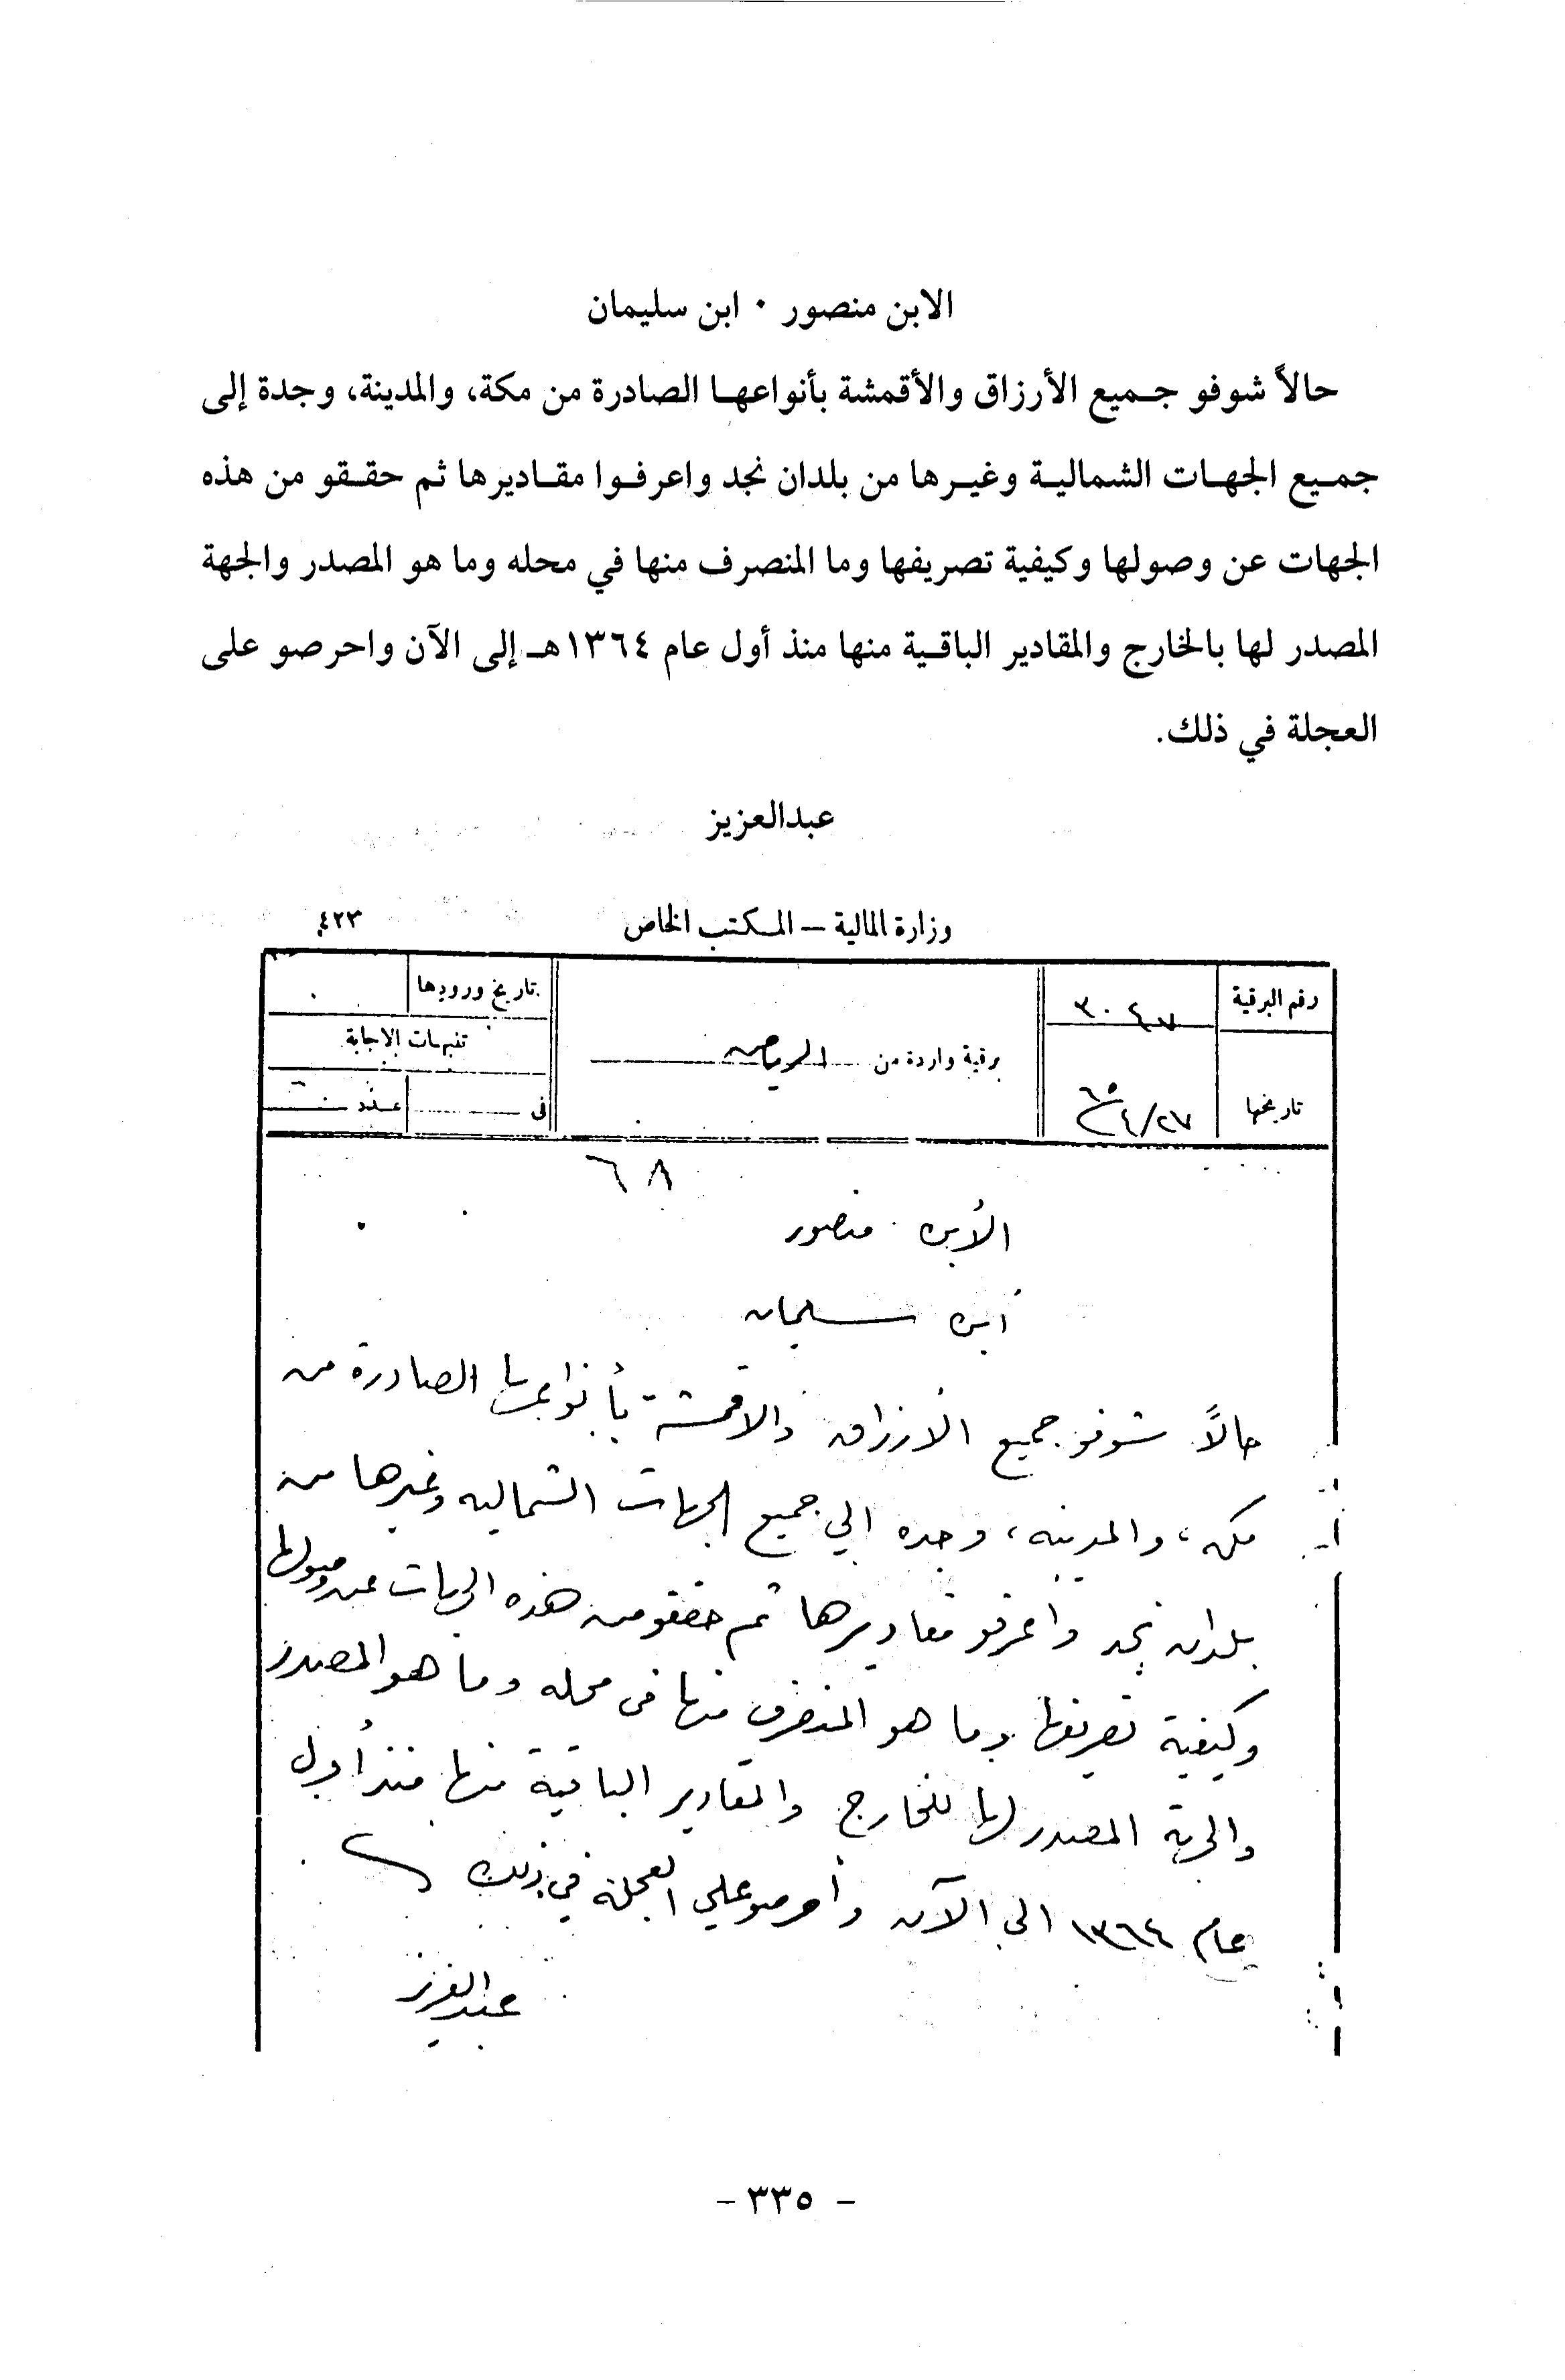 الابن منصور ٠ ابن سليمان
حالاً شوفو جميع الأرزاق والأقمشة بأنواعها الصادرة من مكة، والمدينة، وجدة إلى
جميع الجهات الشمالية وغيرها من بلدان نجد واعرفوا مقاديرها ثم حققو من هذه
الجهات عن وصولها وكيفية تصريفها وما المنصرف منها في محله وما هو المصدر والجهة
المصدر لها بالخارج والمقادير الباقية منها منذ أول عام ١٣٦٤هـ إلى الآن واحرصو على
العجلة في ذلك.
عبدالعزيز
وزارة المالية – المكتب الخاص
٤٢٣
رقم البرقية
تاريخها ٢٧/٤/٦٥
برقية واردة من الرياض
تاريخ ورودها
تفهيمات الاجابة
في
عدد
٦٨
الأبن منصور
أبن سليمان
حالاً شوفو جميع الارزاق والاقمشة بأنواعها الصادرة من
مكه، والمدينه، وجده الي جميع الجهات الشماليه وغيرها من
بلدان نجد واعرفو مقاديرها ثم حققو من هذه الجهات عن وصولها
وكيفية تصريفها وما هو المنصرف منها في محله وما هو المصدر
والجهة المصدر لها للخارج والمقادير الباقية منها منذ أول
عام ١٣٦٤ الى الآن وأحرصو علي العجلة في ذلك
عبدالعزيز
- ٣٣٥ -